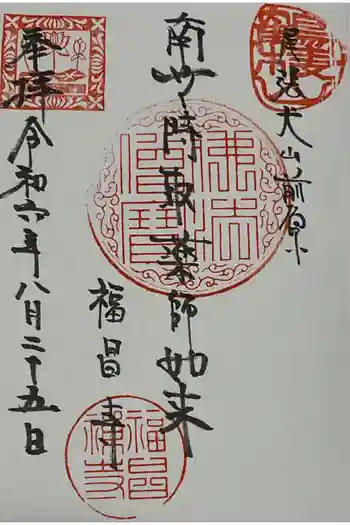 尾張犬山前原
南無時取薬師如来
福昌寺
奉拝
令和六年八月二十五日
佛法僧寶
福昌禅寺